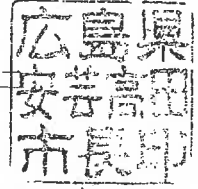 広島県
安芸高田
市長印